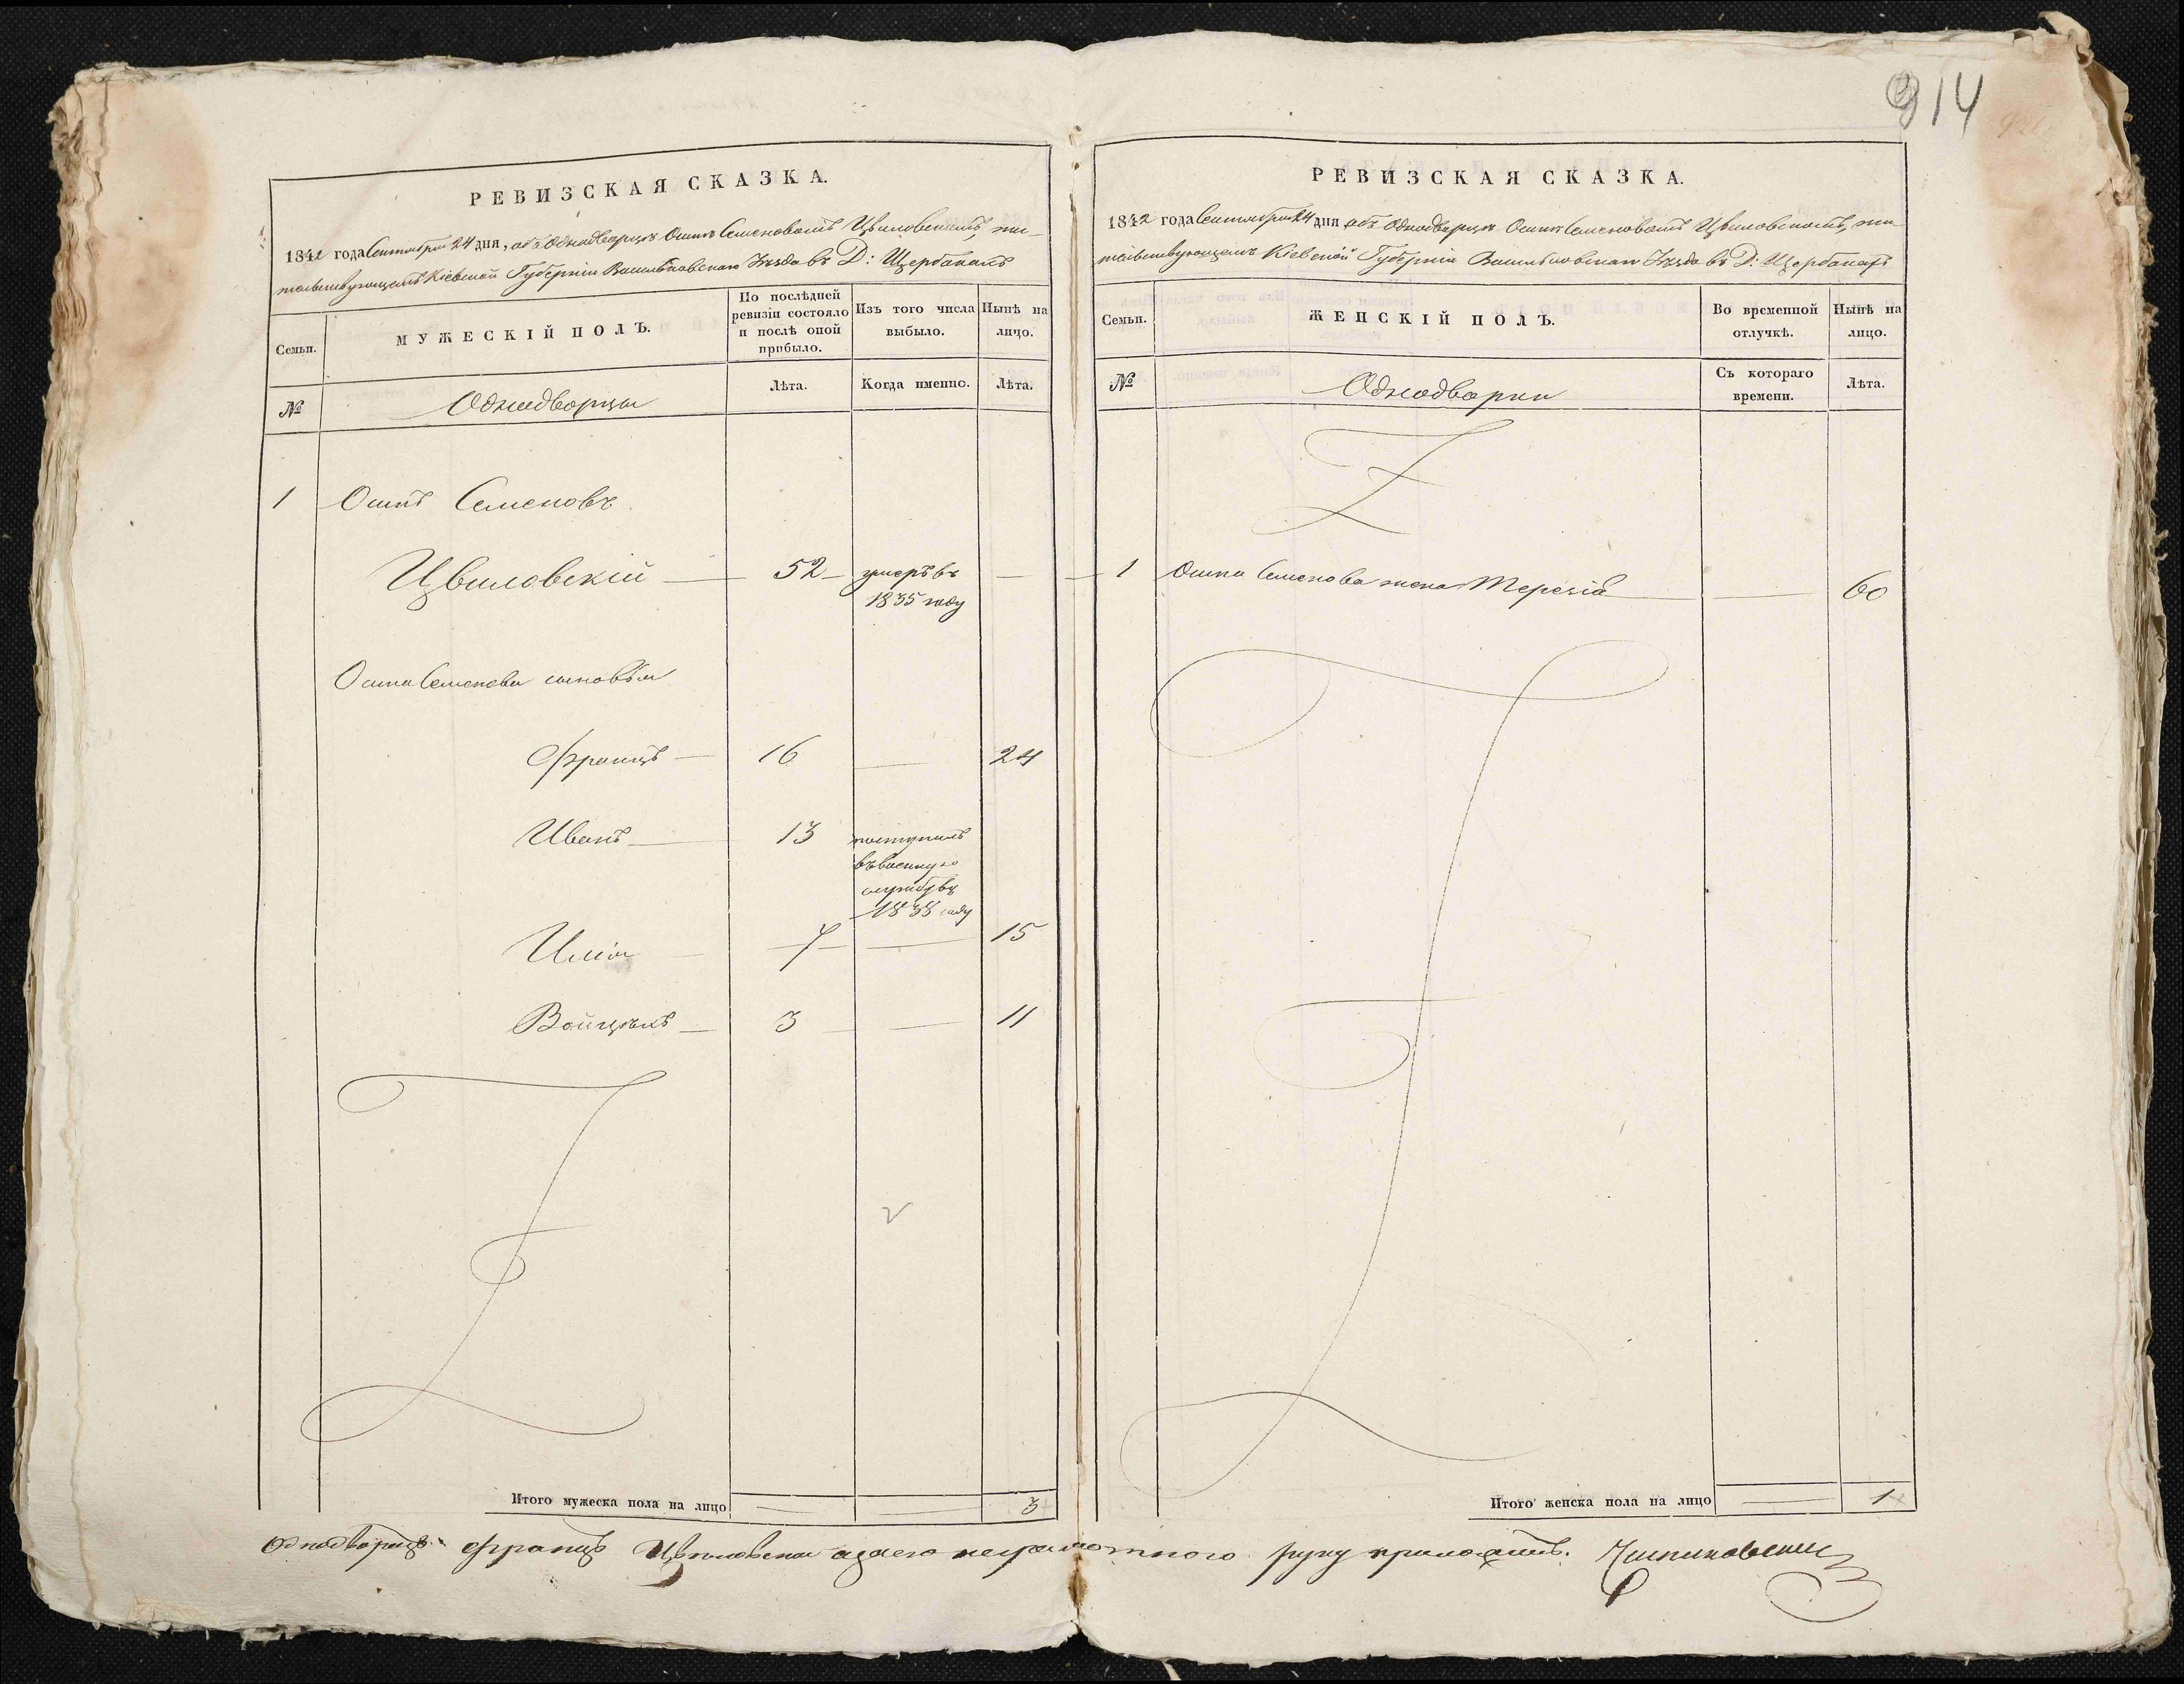 914
РЕВИЗСКАЯ СКАЗКА.
1842 года Сентября 24 дня, объ Однодворцѣ Осипѣ Семеновомъ Цвиловскомъ, жи-
тельствующемъ Кіевской Губерніи Васильковскаго Уѣзда въ Д: Щербакахъ
Семьи.
МУЖЕСКІЙ ПОЛЪ.
По послѣдней ревизіи состояло и послѣ оной прибыло.
Изъ того числа выбыло.
Нынѣ на лицо.
№
Однодворцы
Лѣта.
Когда именно.
Лѣта.
1 Осипъ Семеновъ
Цвиловскій 52 умеръ въ
1835 году
Осипа Семенова сыновья
Францъ 16 24
Иванъ 13 поступилъ
въ военную
службу въ
1838 году
Илія 7 15
Войцѣхъ 3 11
Итого мужеска пола на лицо 3
РЕВИЗСКАЯ СКАЗКА.
1842 года Сентября 24 дня объ Однодворцѣ Осипѣ Семеновомъ Цвиловскомъ, жи
тельствующемъ Кіевской Губерніи Васильковскаго Уѣзда въ Д: Щербакахъ
Семьи.
ЖЕНСКІЙ ПОЛЪ.
Во временной отлучкѣ.
Нынѣ на лицо.
№
Однодворки
Съ котораго времени.
Лѣта.
1 Осипа Семенова жена Терезія 60
Итого женска пола на лицо 1
Однодворецъ Францъ Цвиловскій а за его неграмотного руку приложилъ.